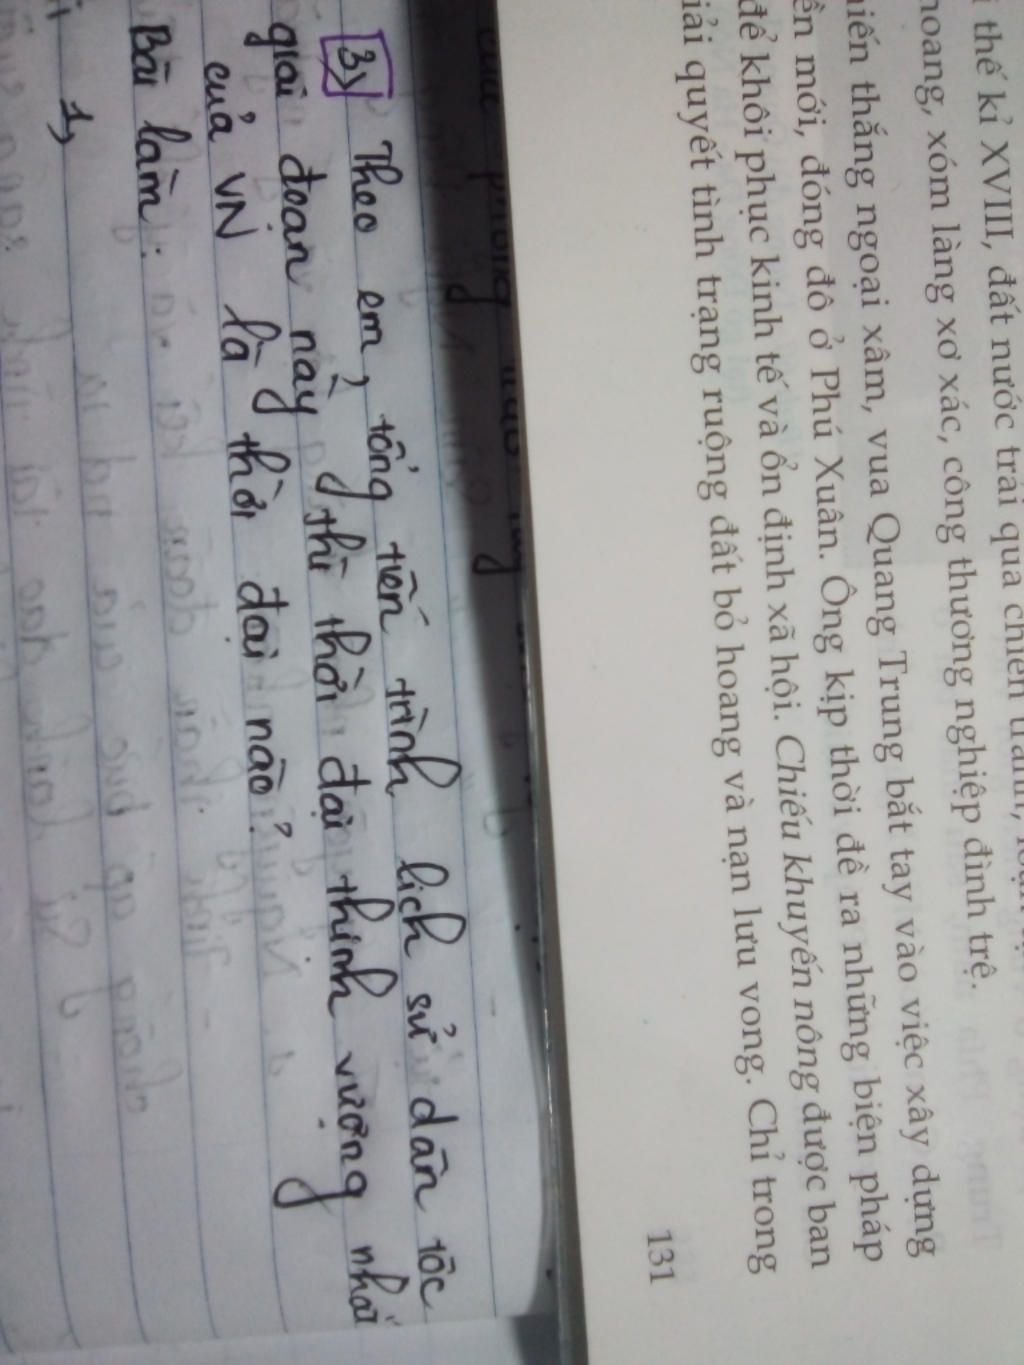 thế kỉ XVIII, đất nước trải qua chiến tranh,
hoang, xóm làng xơ xác, công thương nghiệp đình trệ.
hiến thắng ngoại xâm, vua Quang Trung bắt tay vào việc xây dựng
ền mới, đóng đô ở Phú Xuân. Ông kịp thời đề ra những biện pháp
để khôi phục kinh tế và ổn định xã hội. Chiếu khuyến nông được ban
iải quyết tình trạng ruộng đất bỏ hoang và nạn lưu vong. Chỉ trong
131
3) Theo em, tổng tiến trình lịch sử dân tộc
giai đoạn này thì thời đại thịnh vượng nhất
của VN là thời đại nào?
Bài làm:
1,